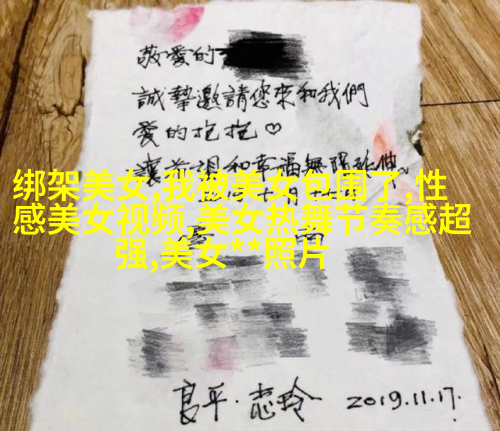 敬愛的
誠摯邀請您來和我們
愛的抱抱♡
讓前進和幸福無限延伸
绑架美女,我被美女包围了,性
感美女视频,美女热舞节奏感超
强,美女**照片
良平·志玲 2019.11.17.